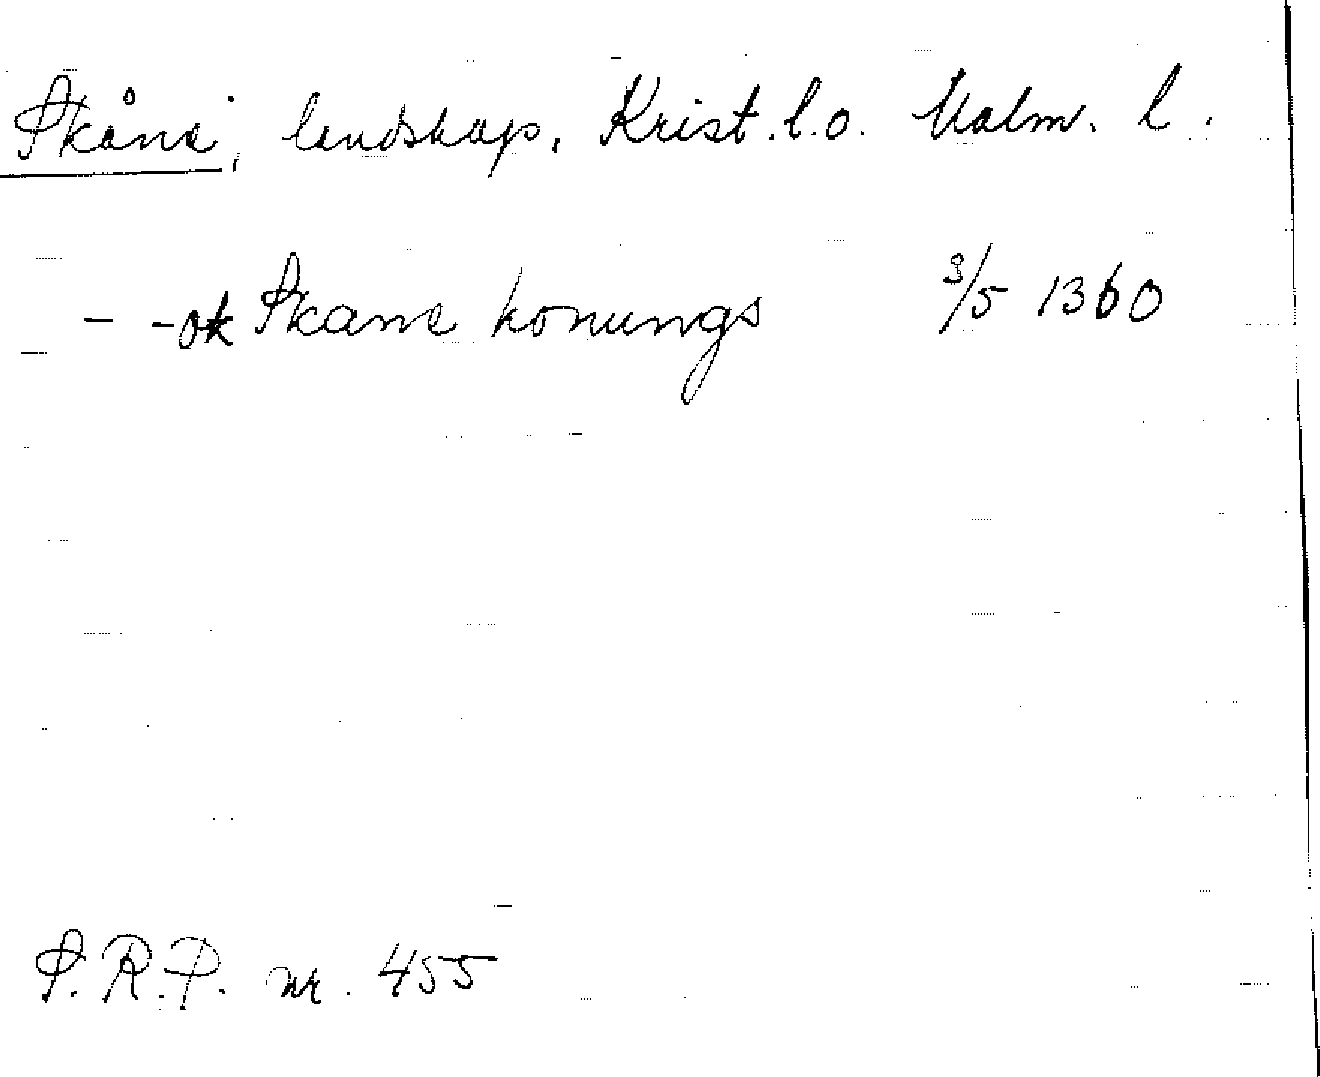 Skåne, landskap, Krist. l. o. Malm. l.
- - ok Skane konungs 3/5 1360
S.R.P. nr. 455